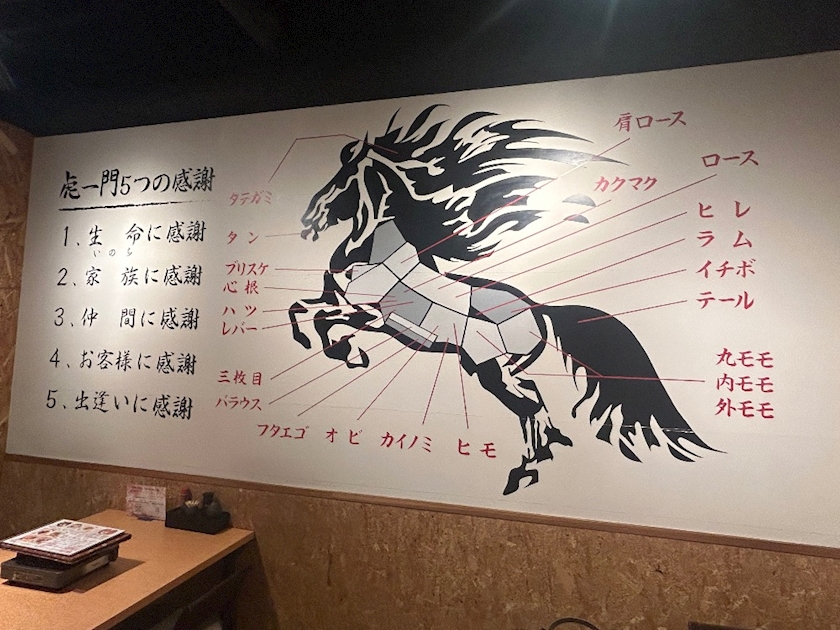 虎一門5つの感謝
1、生　命に感謝
いのち
2、家　族に感謝
3、仲　間に感謝
4、お客様に感謝
5、出逢いに感謝
タテガミ
タン
ブリスケ
心根
ハツ
レバー
三枚目
バラウス
フタエゴ
オビ
カイノミ
ヒモ
肩ロース
カクマク
ロース
ヒレ
ラム
イチボ
テール
丸モモ
内モモ
外モモ